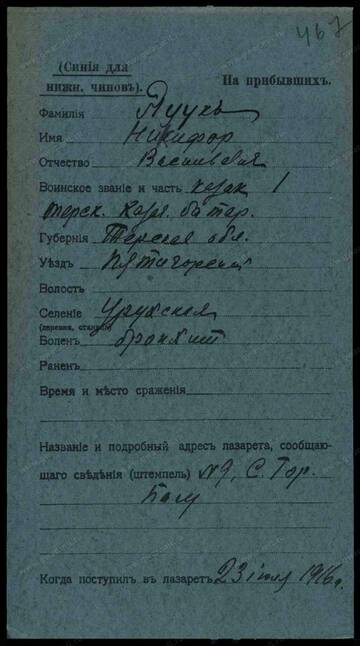 467
(Синія для
нижн. чиновъ).
На прибывшихъ.
Фамилія
Имя Никифор
Отчество Васильевич
Воинское званіе и часть казак 1
терск. каз. батар.
Губернія Терская обл.
Уѣздъ Пятигорский
Волость
Селеніе Урухская
(деревня, станица)
Боленъ бронхит
Раненъ
Время и мѣсто сраженія
Названіе и подробный адресъ лазарета, сообщаю-
щаго свѣдѣнія (штемпель) №9, С. Гор.
Когда поступилъ въ лазаретъ 23 июля 1916 г.